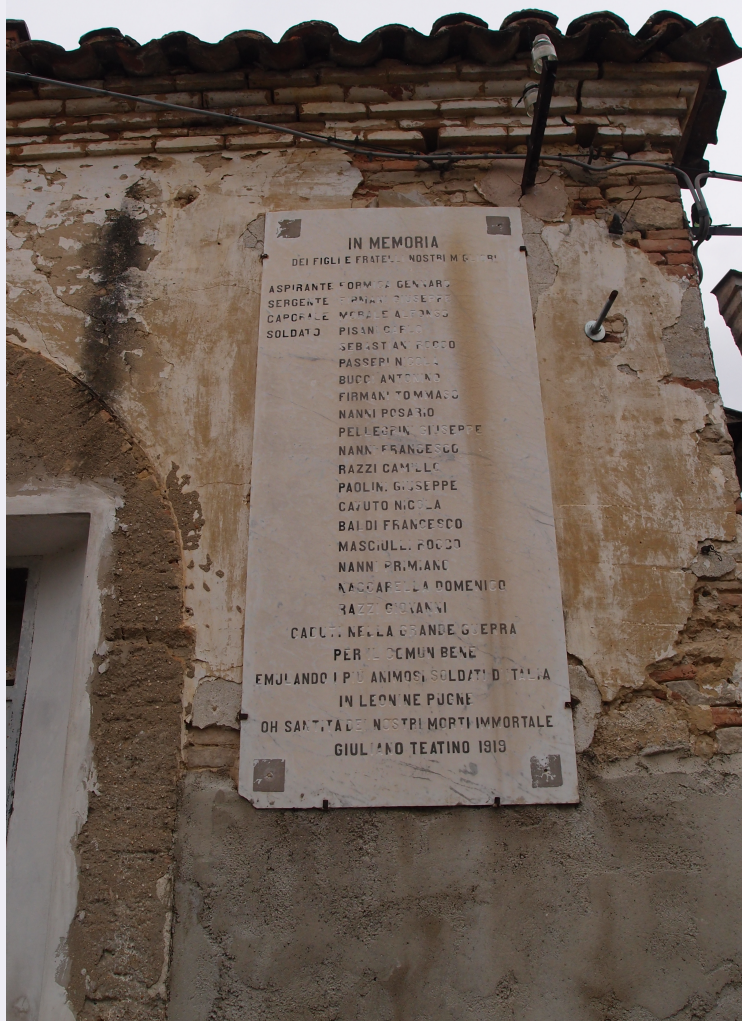 IN MEMORIA
DEI FIGLI E FRATELLI NOSTRI MARTIRI
ASPIRANTE FORMICA GENNARO
SERGENTE FIRMANI GIUSEPPE
CAPORALE MORALE ALFONSO
SOLDATO PISANI
SEBASTIANI ROCCO
PASSERI NICOLA
BUCCI ANTONINO
FIRMANI TOMMASO
NANNI ROSARIO
PELLEGRINI GIUSEPPE
NANNI FRANCESCO
RAZZI CAMILLO
PAOLINI GIUSEPPE
CAVUTO NICOLA
BALDI FRANCESCO
MASCIULLI ROCCO
NANNI PRIMIANO
NACCARELLA DOMENICO
RAZZI GIOVANNI
CADUTI NELLA GRANDE GUERRA
PER IL COMUN BENE
EMULANDO I PIÙ ANIMOSI SOLDATI D'ITALIA
IN LEONINE PUGNE
OH SANTITA DEI NOSTRI MORTI IMMORTALE
GIULIANO TEATINO 1919